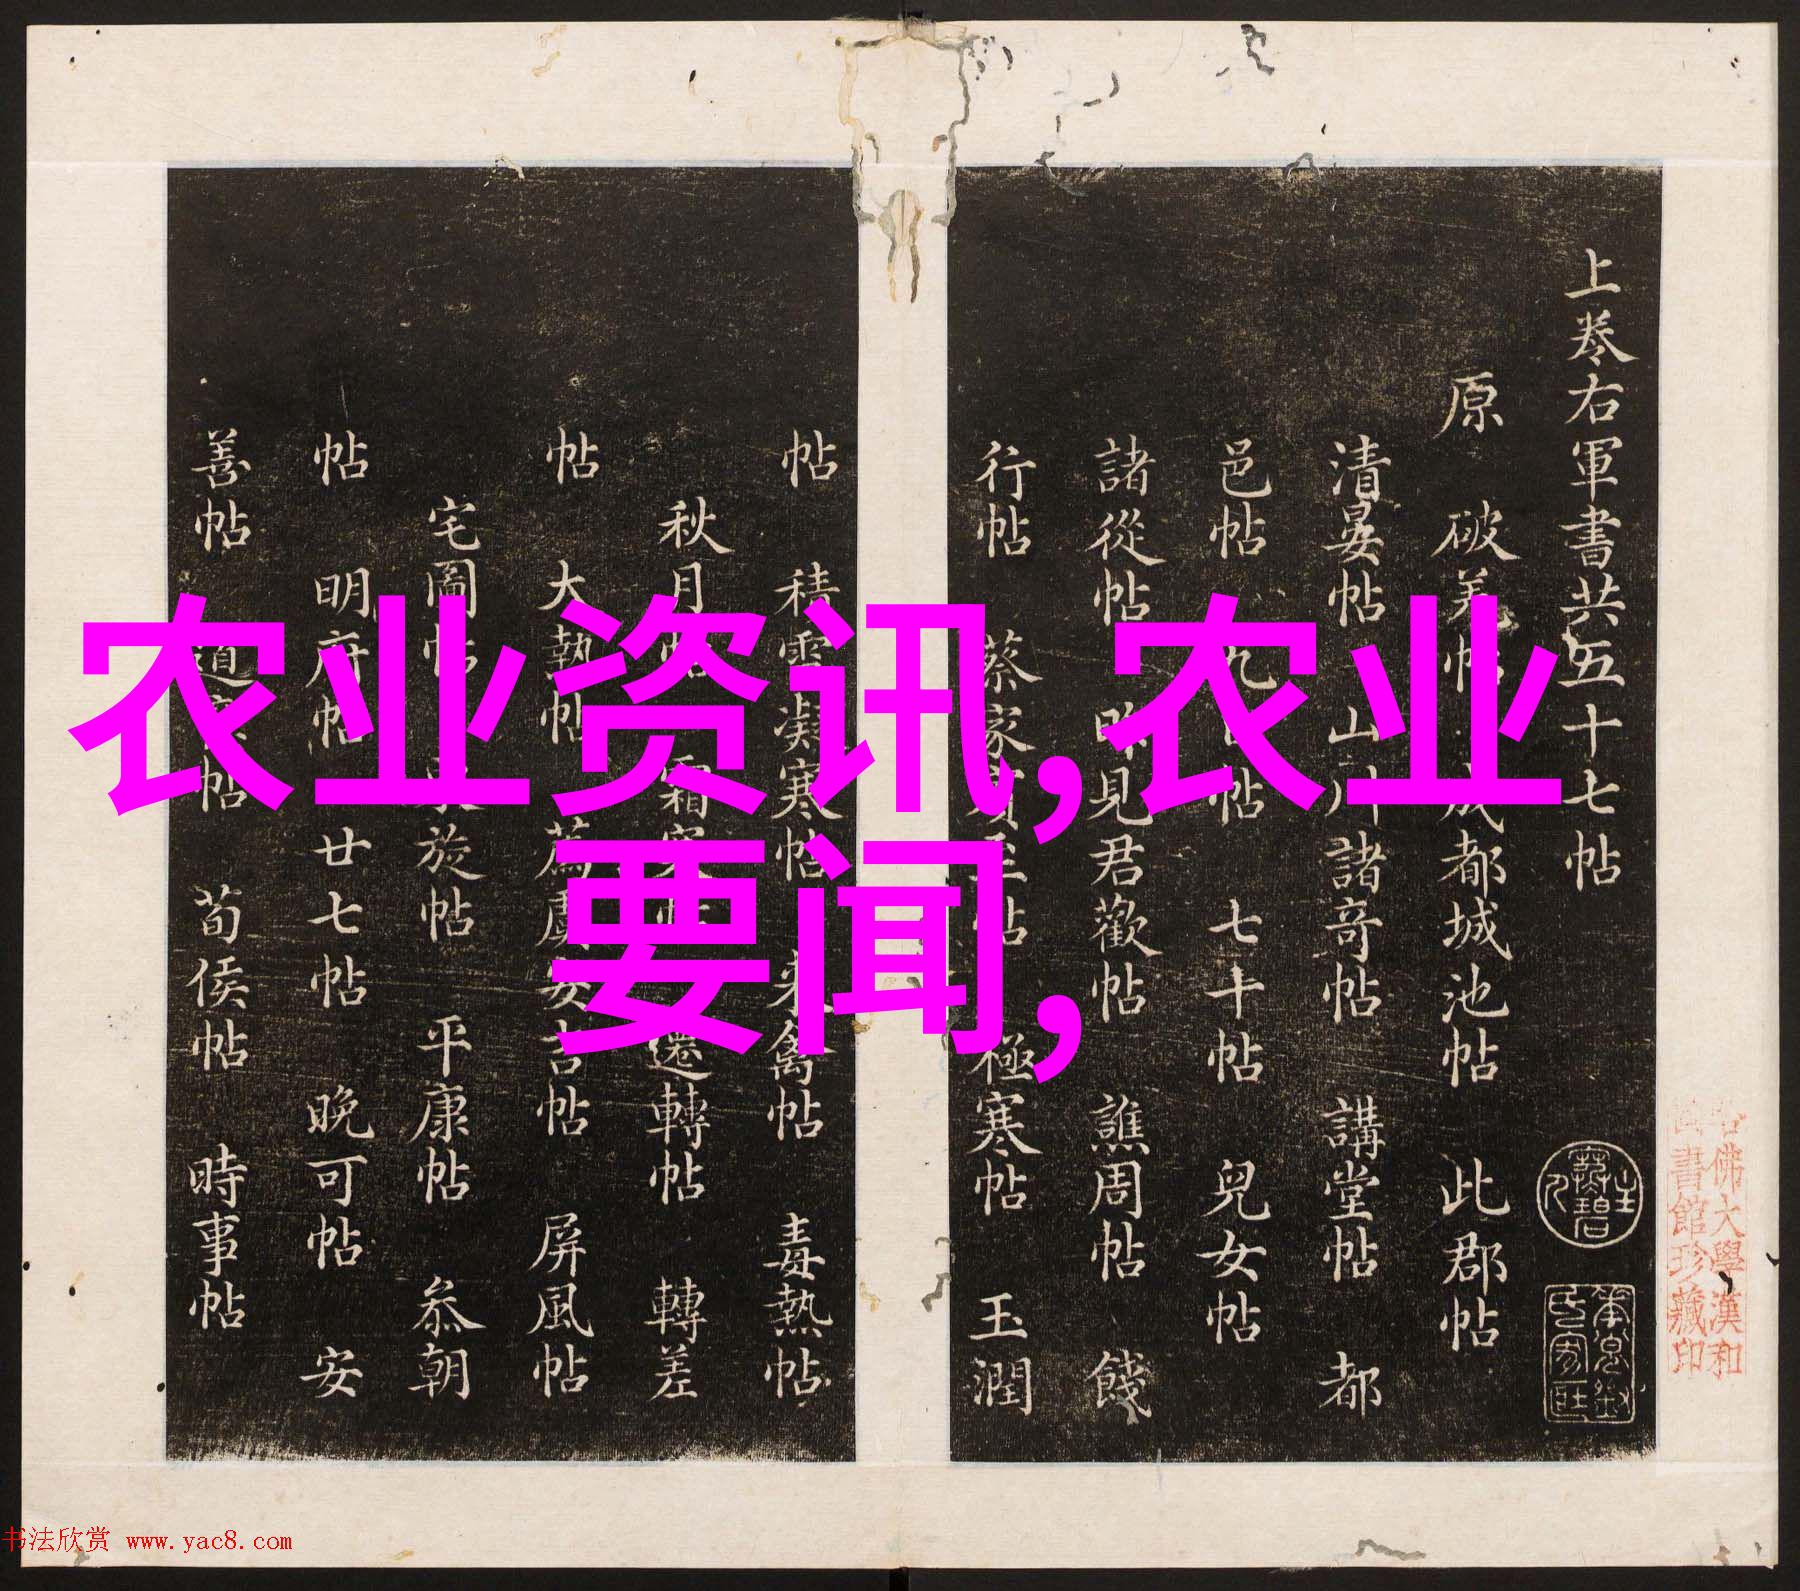 农业资讯,农业
要闻,
上卷右軍書共五十七帖
原 破羌帖 成都城池帖 此郡帖
清晏帖 山川諸奇帖 講堂帖 都
邑帖 七十帖 兒女帖
諸從帖 昨見君歡帖 譙周帖 餞
行帖 蔡家賓至帖 極寒帖 玉潤
帖 積雪凝寒帖 來禽帖 毒熱帖
秋月帖 還轉帖 轉差
帖 大熱帖 為虞安吉帖 屏風帖
宅圖帖 旋帖 平康帖 叅朝
帖 明府帖 廿七帖 晚可帖 安
善帖 帖 荀侯帖 時事帖
佛大學漢和
書館珍藏印
书法欣赏 www.yac8.com